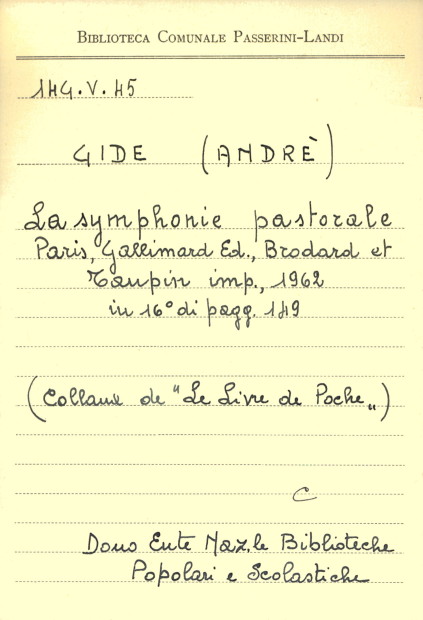 BIBLIOTECA COMUNALE PASSERINI-LANDI
14G.V.45
GIDE (ANDRÈ)
La symphonie pastorale
Paris, Gallimard Ed., Brodard et
Taupin imp., 1962
in 16° di pagg. 149
(Collana de "Le Livre de Poche„)
C
Dono Ente Naz.le Biblioteche
Popolari e Scolastiche